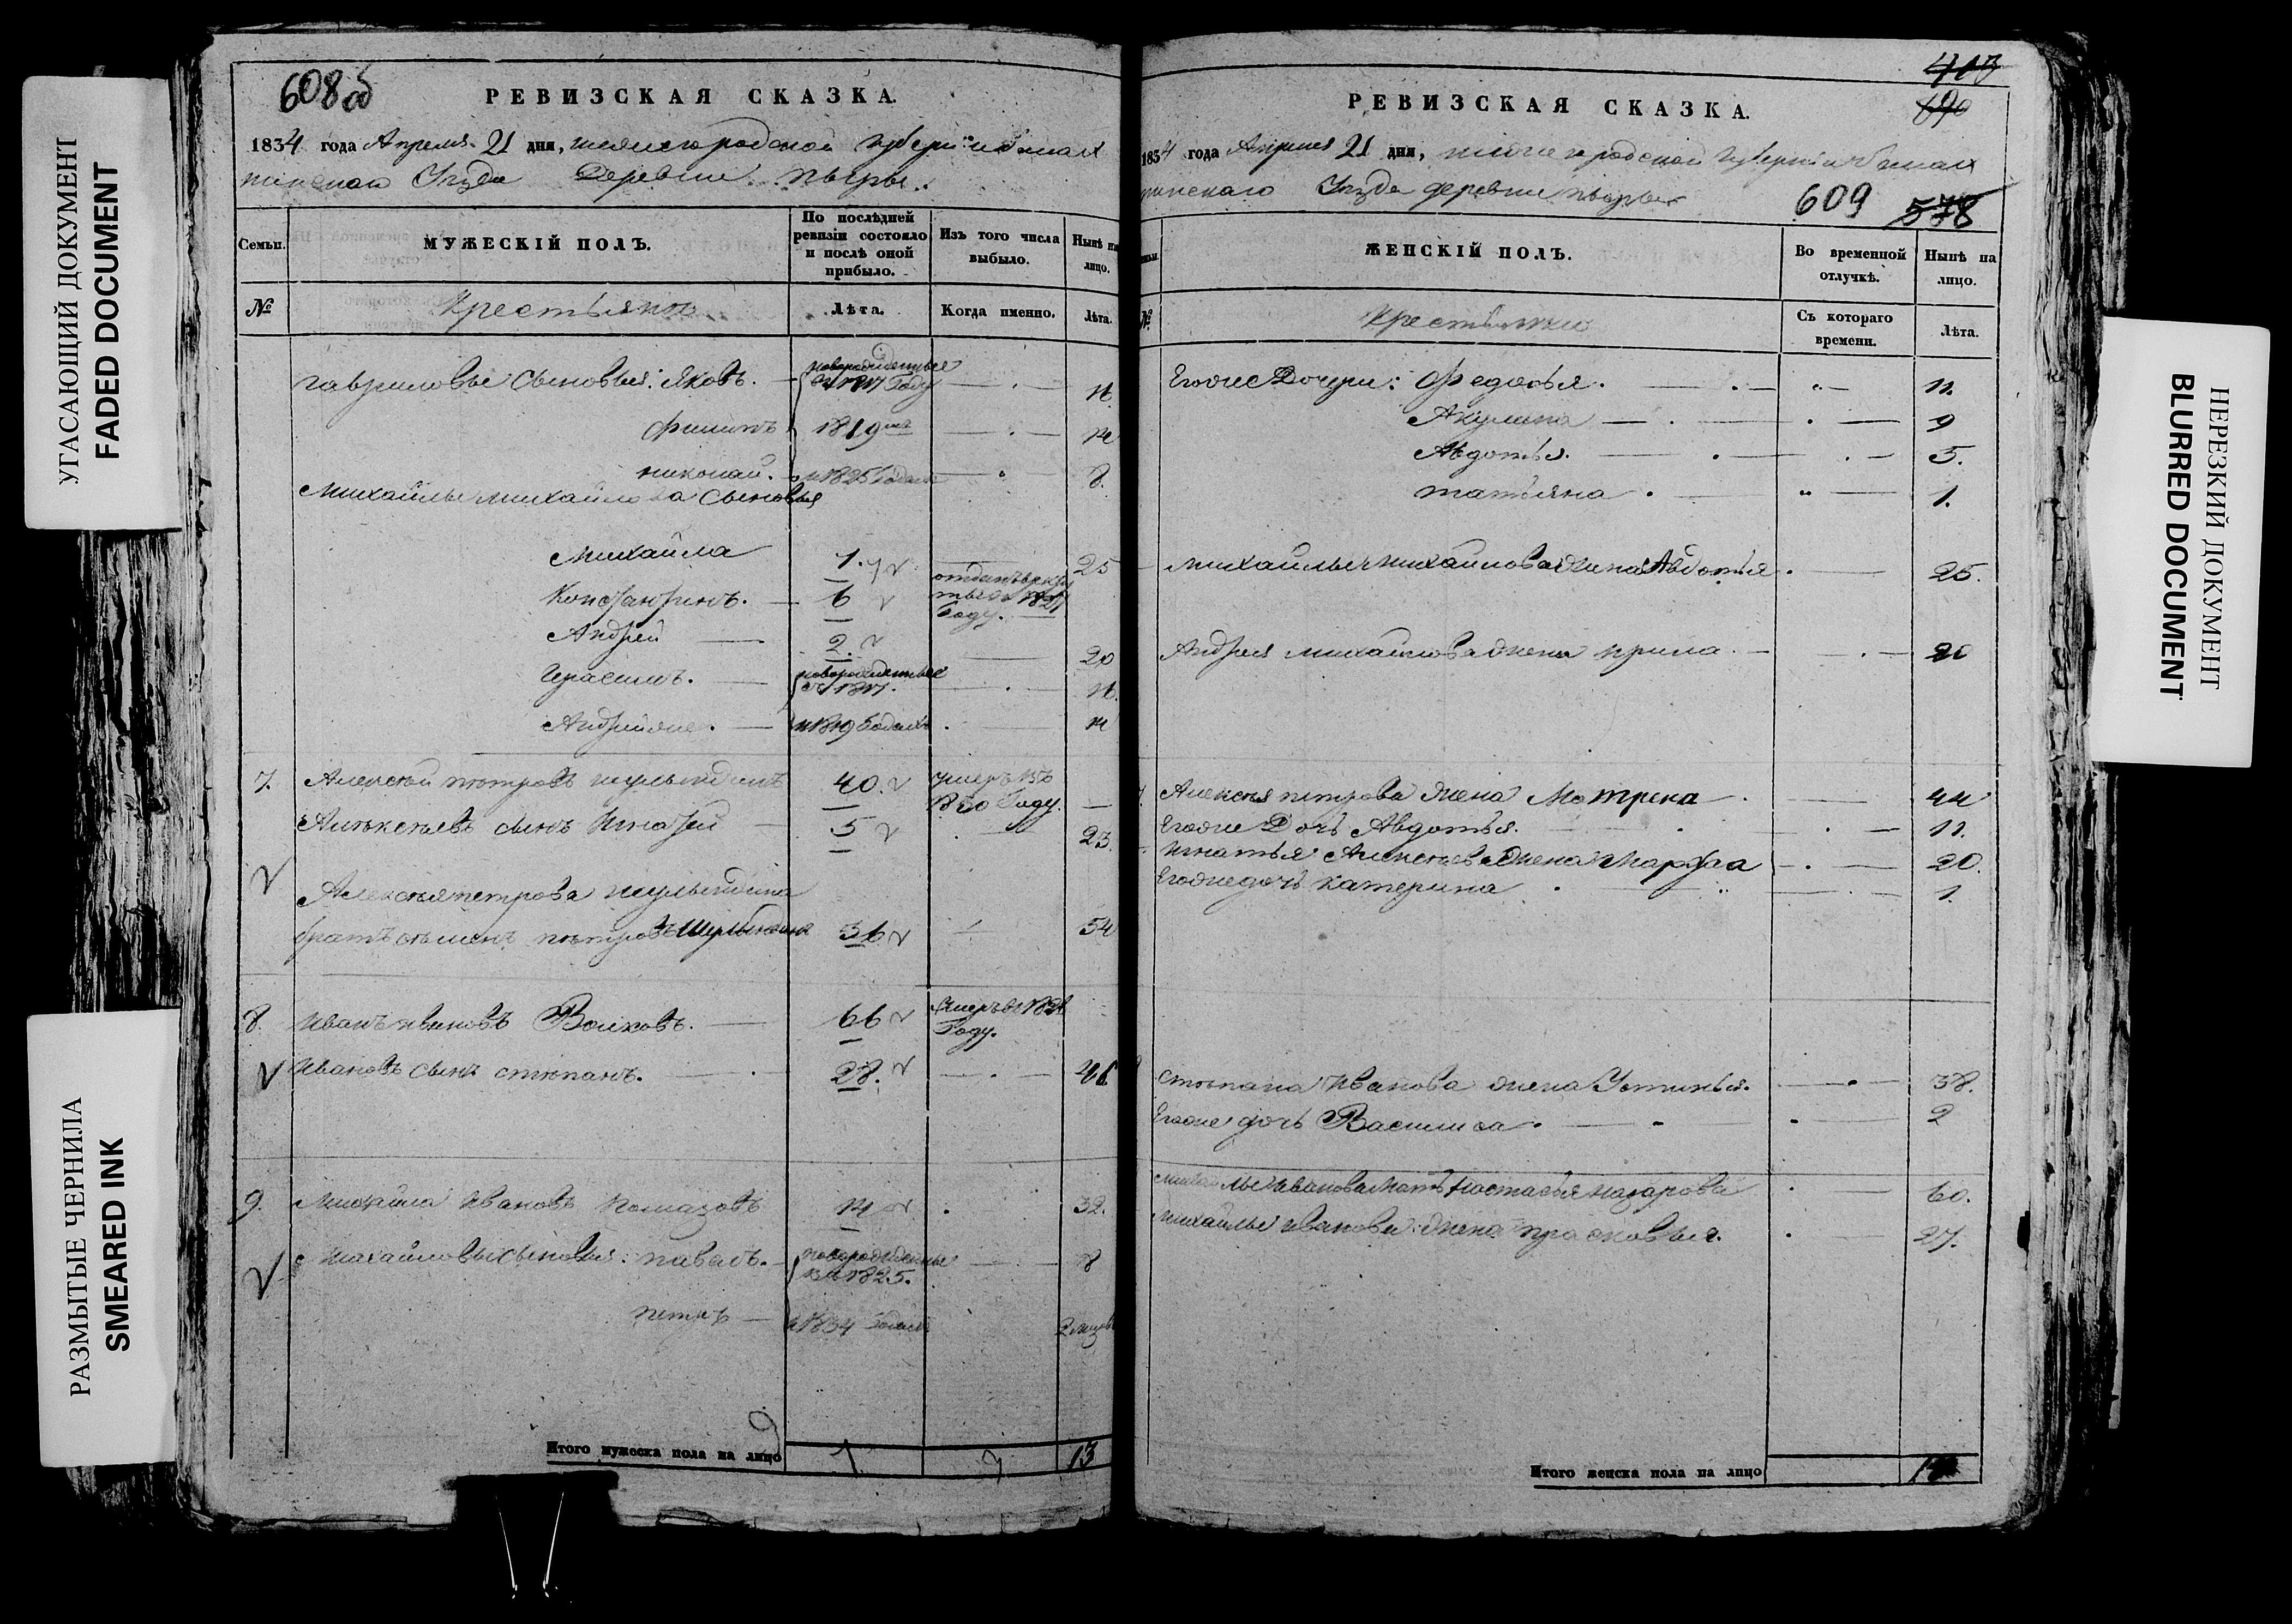 УГАСАЮЩИЙ ДОКУМЕНТ
FADED DOCUMENT
РАЗМЫТЫЕ ЧЕРНИЛА
SMEARED INK
608 об
РЕВИЗСКАЯ СКАЗКА.
1834 года Апреля 21 дня, нижегородской губернии балах
нинскаго Уезда Деревни
Семьи.
МУЖЕСКІЙ ПОЛЪ.
По послѣдней ревизіи состояло и послѣ оной прибыло.
Изъ того числа выбыло.
Нынѣ на лицо.
№
Крестьяне
Лѣта.
Когда именно.
Лѣта.
гавриловы сыновья: Яковъ. новорожденные в 1817 Году 16
Филипъ 1819 14
николай. и 1825 Годахъ 8.
Михайлы михайлова сыновья
Михайла 1. 25
Константинъ. 6 отданъ в рекруты в 1827 Году.
Андрей 2. 20
Герасимъ. новорожденные в 1817. 16
Андреянъ. и 1819 Годахъ 14
7. Алексей петровъ 40. умеръ въ 1830 Году.
Алексеевъ сынъ Игнатей 5 23.
Алексея петрова
братъ семенъ петровъ 36 54
8. Иванъ ивановъ Волковъ. 66 Умеръ в 1826 Году.
Ивановъ сынъ степанъ. 28. 46
9. Михайла Ивановъ 14 32.
Михайловы сыновья: павелъ. новорожденные в 1825. 8
петръ и 1834 Годахъ
9
Итого мужеска пола на лицо 13
413
690
РЕВИЗСКАЯ СКАЗКА.
1834 года Апреля 21 дня, нижегородской губернии балах
нинскаго Уезда деревни
609 578
ЖЕНСКІЙ ПОЛЪ.
Во временной отлучкѣ.
Нынѣ на лицо.
№
Крестьянки
Съ котораго времени.
Лѣта.
Егоже Дочери: Федосья. 11.
Акулина 9
Авдотья. 5.
татьяна 1.
михайлы михайлова жена Авдотья 25.
Андрея михайлова жена ирина 20
Алексея петрова жена Матрена 44
Егоже Дочь Авдотья. 11.
игнатья Алексеева жена Марфа 20.
Егоже дочь катерина 1.
степана Иванова жена Устинья. 38.
Егоже дочь Василиса 2
михайлы Иванова мать Настасья назарова 60.
михайлы иванова жена прасковья. 27.
Итого женска пола на лицо
НЕРЕЗКИЙ ДОКУМЕНТ
BLURRED DOCUMENT